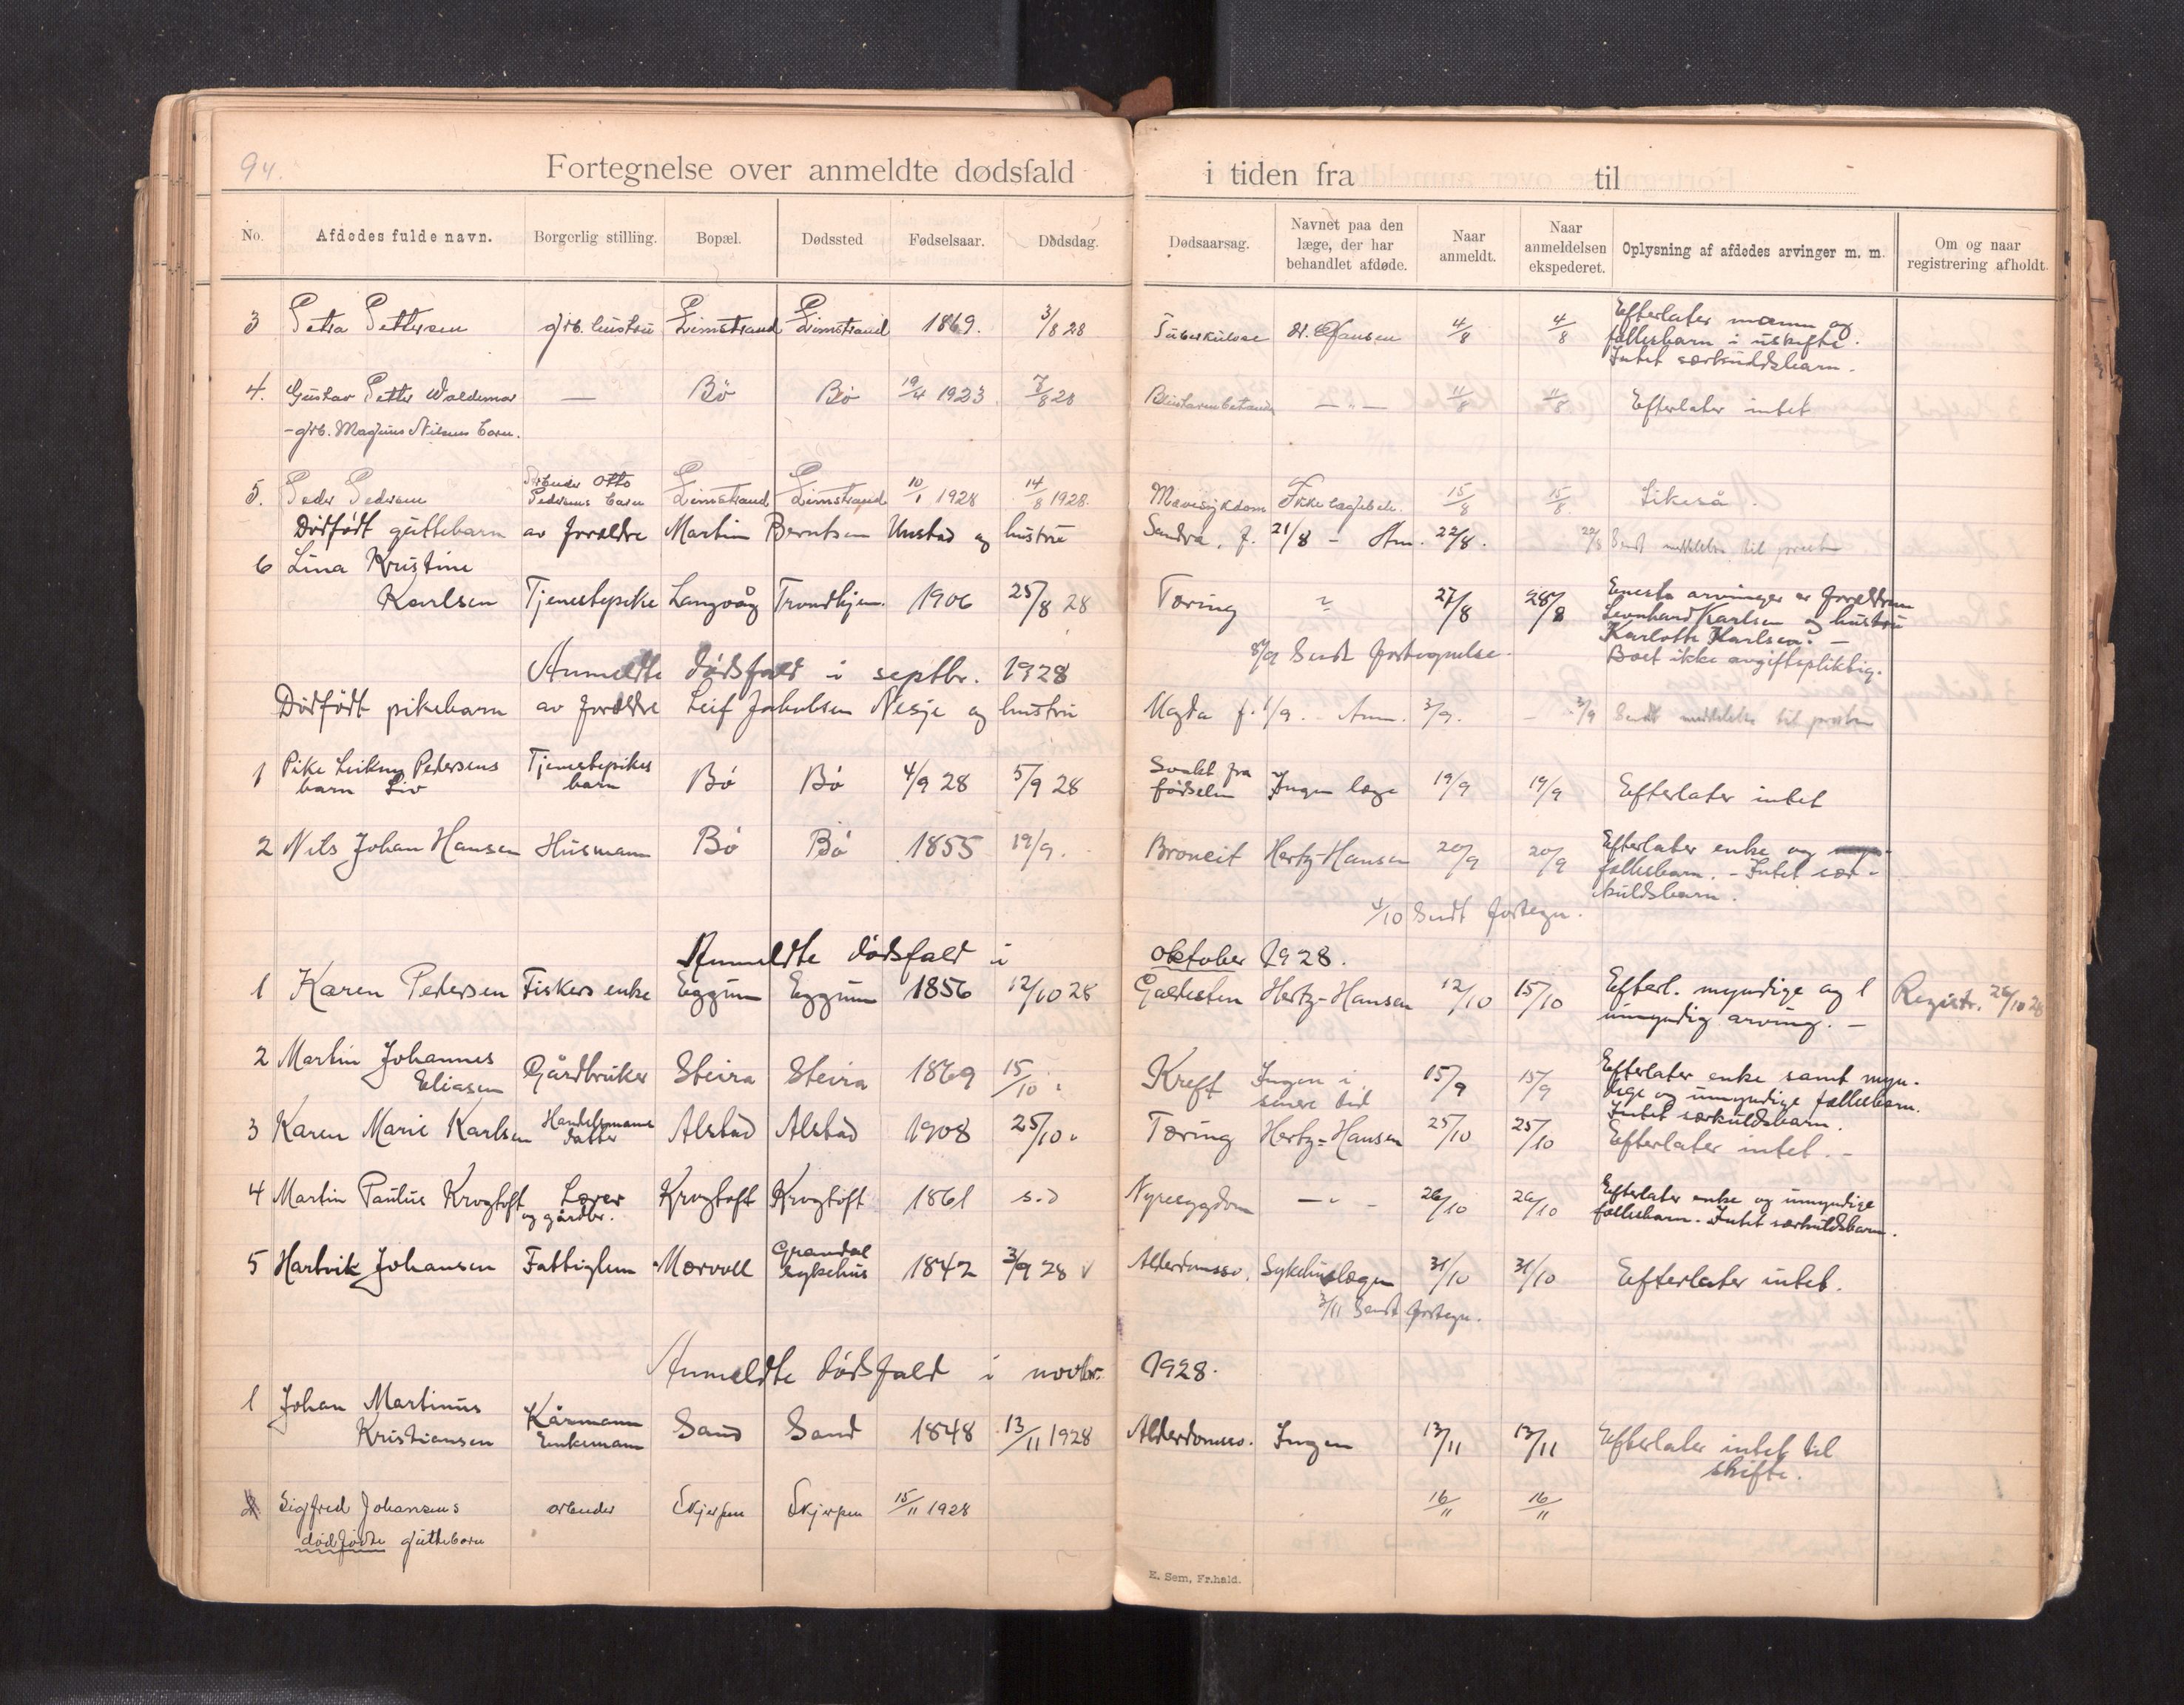 94.
Fortegnelse over anmeldte dødsfald i tiden fra til
No. Afdødes fulde navn. Borgerlig stilling. Bopæl. Dødssted Fødselsaar. Dødsdag. Dødsaarsag. Navnet paa den læge, der har behandlet afdøde. Naar anmeldt. Naar anmeldelsen ekspederet. Oplysning af afdødes arvinger m. m. Om og naar registrering afholdt.
3 Petra Pettersen grb. hustru Limstrand Limstrand 1869. 3/8 28 Tuberkulose 4/8 4/8 Efterlater mann og
fællesbarn i uskifte.
Intet særkuldsbarn.
4. Gustav Petter Waldemar — Bö Bö 19/4 1923 7/8 28 Blindtarmbetændelse —"— 11/8 11/8 Efterlater intet
- grb. Magnus Nilsens barn.
5. Peder Pedersen Arbeider Otto Pedersens barn Limstrand Limstrand 10/1 1928 14/8 1928. Mavesykdom Ikke lægebeh. 15/8 15/8 Likeså.
Dödfödt guttebarn av foreldre Martin Berntsen Unstad og hustru Sandra, f. 21/8 - Anm. 22/8. 22/8 Sendt meddelelse til presten
6 Lina Kristine
Karlsen Tjenestepike Langvåg Trondhjem. 1906 25/8 28 Tæring " 27/8 28/8 Eneste arvinger er foreldrene
Leonhard Karlsen og hustru
Karlotte Karlsen. —
Boet ikke avgiftspliktig.
8/9 Sendt fortegnelse.
Anmeldte dödsfald i septbr. 1928
Dödfödt pikebarn av foreldre Leif Jakobsen Nesje og hustru Magda f. 1/9. Anm. 3/9. - 3/9 Sendt meddelelse til presten
1 Pike Leikny Pedersens barn Liv Tjenestepikes barn Bö Bö 4/9 28 5/9 28 Svakt fra födselen Ingen læge 19/9 19/9 Efterlater intet
2 Nils Johan Hansen Husmann Bö Bö 1855 19/9. Broncit Hertz-Hansen 20/9 20/9 Efterlater enke og
fællesbarn. - Intet sær-
kuldsbarn.
4/10 Sendt fortegn.
Anmeldte dödsfald i oktober 1928.
1 Karen Pedersen Fiskers enke Eggum Eggum 1856 12/10 28 Galdesten Hertz-Hansen 12/10 15/10 Efterl. myndige og 1
umyndig arving. — Registr. 26/10 28
2 Martin Johannes
Eliasen Gårdbruker Steira Steira 1869 15/10 " Kreft Ingen i senere tid 15/9 15/9 Efterlater enke samt myn-
dige og umyndige fællesbarn.
Intet særkuldsbarn.
3 Karen Marie Karlsen Handelsmanns datter Alstad Alstad 1908 25/10 " Tæring Hertz-Hansen 25/10 25/10 Efterlater intet. -
4 Martin Paulus Krogtoft Lærer og gårdbr. Krogtoft Krogtoft 1861 s.d Nyresygdom —"— 26/10 26/10 Efterlater enke og umyndige
fællesbarn. Intet særkuldsbarn.
5 Hartvik Johansen Fattiglem Mærvoll Gravdal sykehus 1842 3/9 28 Alderdomssv. Sykehuslægen 31/10 31/10 Efterlater intet.
3/11 Sendt fortegn.
Anmeldte dödsfald i novbr. 1928.
1 Johan Martinus
Kristiansen Kårmann Enkemann Sand Sand 1848 13/11 1928 Alderdomssv. Ingen 13/11 13/11 Efterlater intet til
skifte.
2 Sigfred Johansens arbeider Skjerpen Skjerpen 15/11 1928 16/11 16/11
dødfødte guttebarn
E. Sem, Fr.hald.